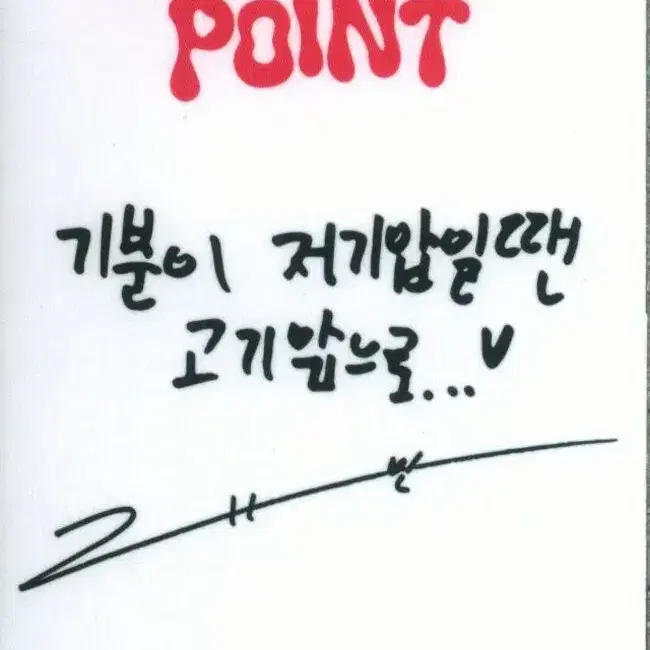 POINT
기분이 저기압일땐
고기앞으로...♥